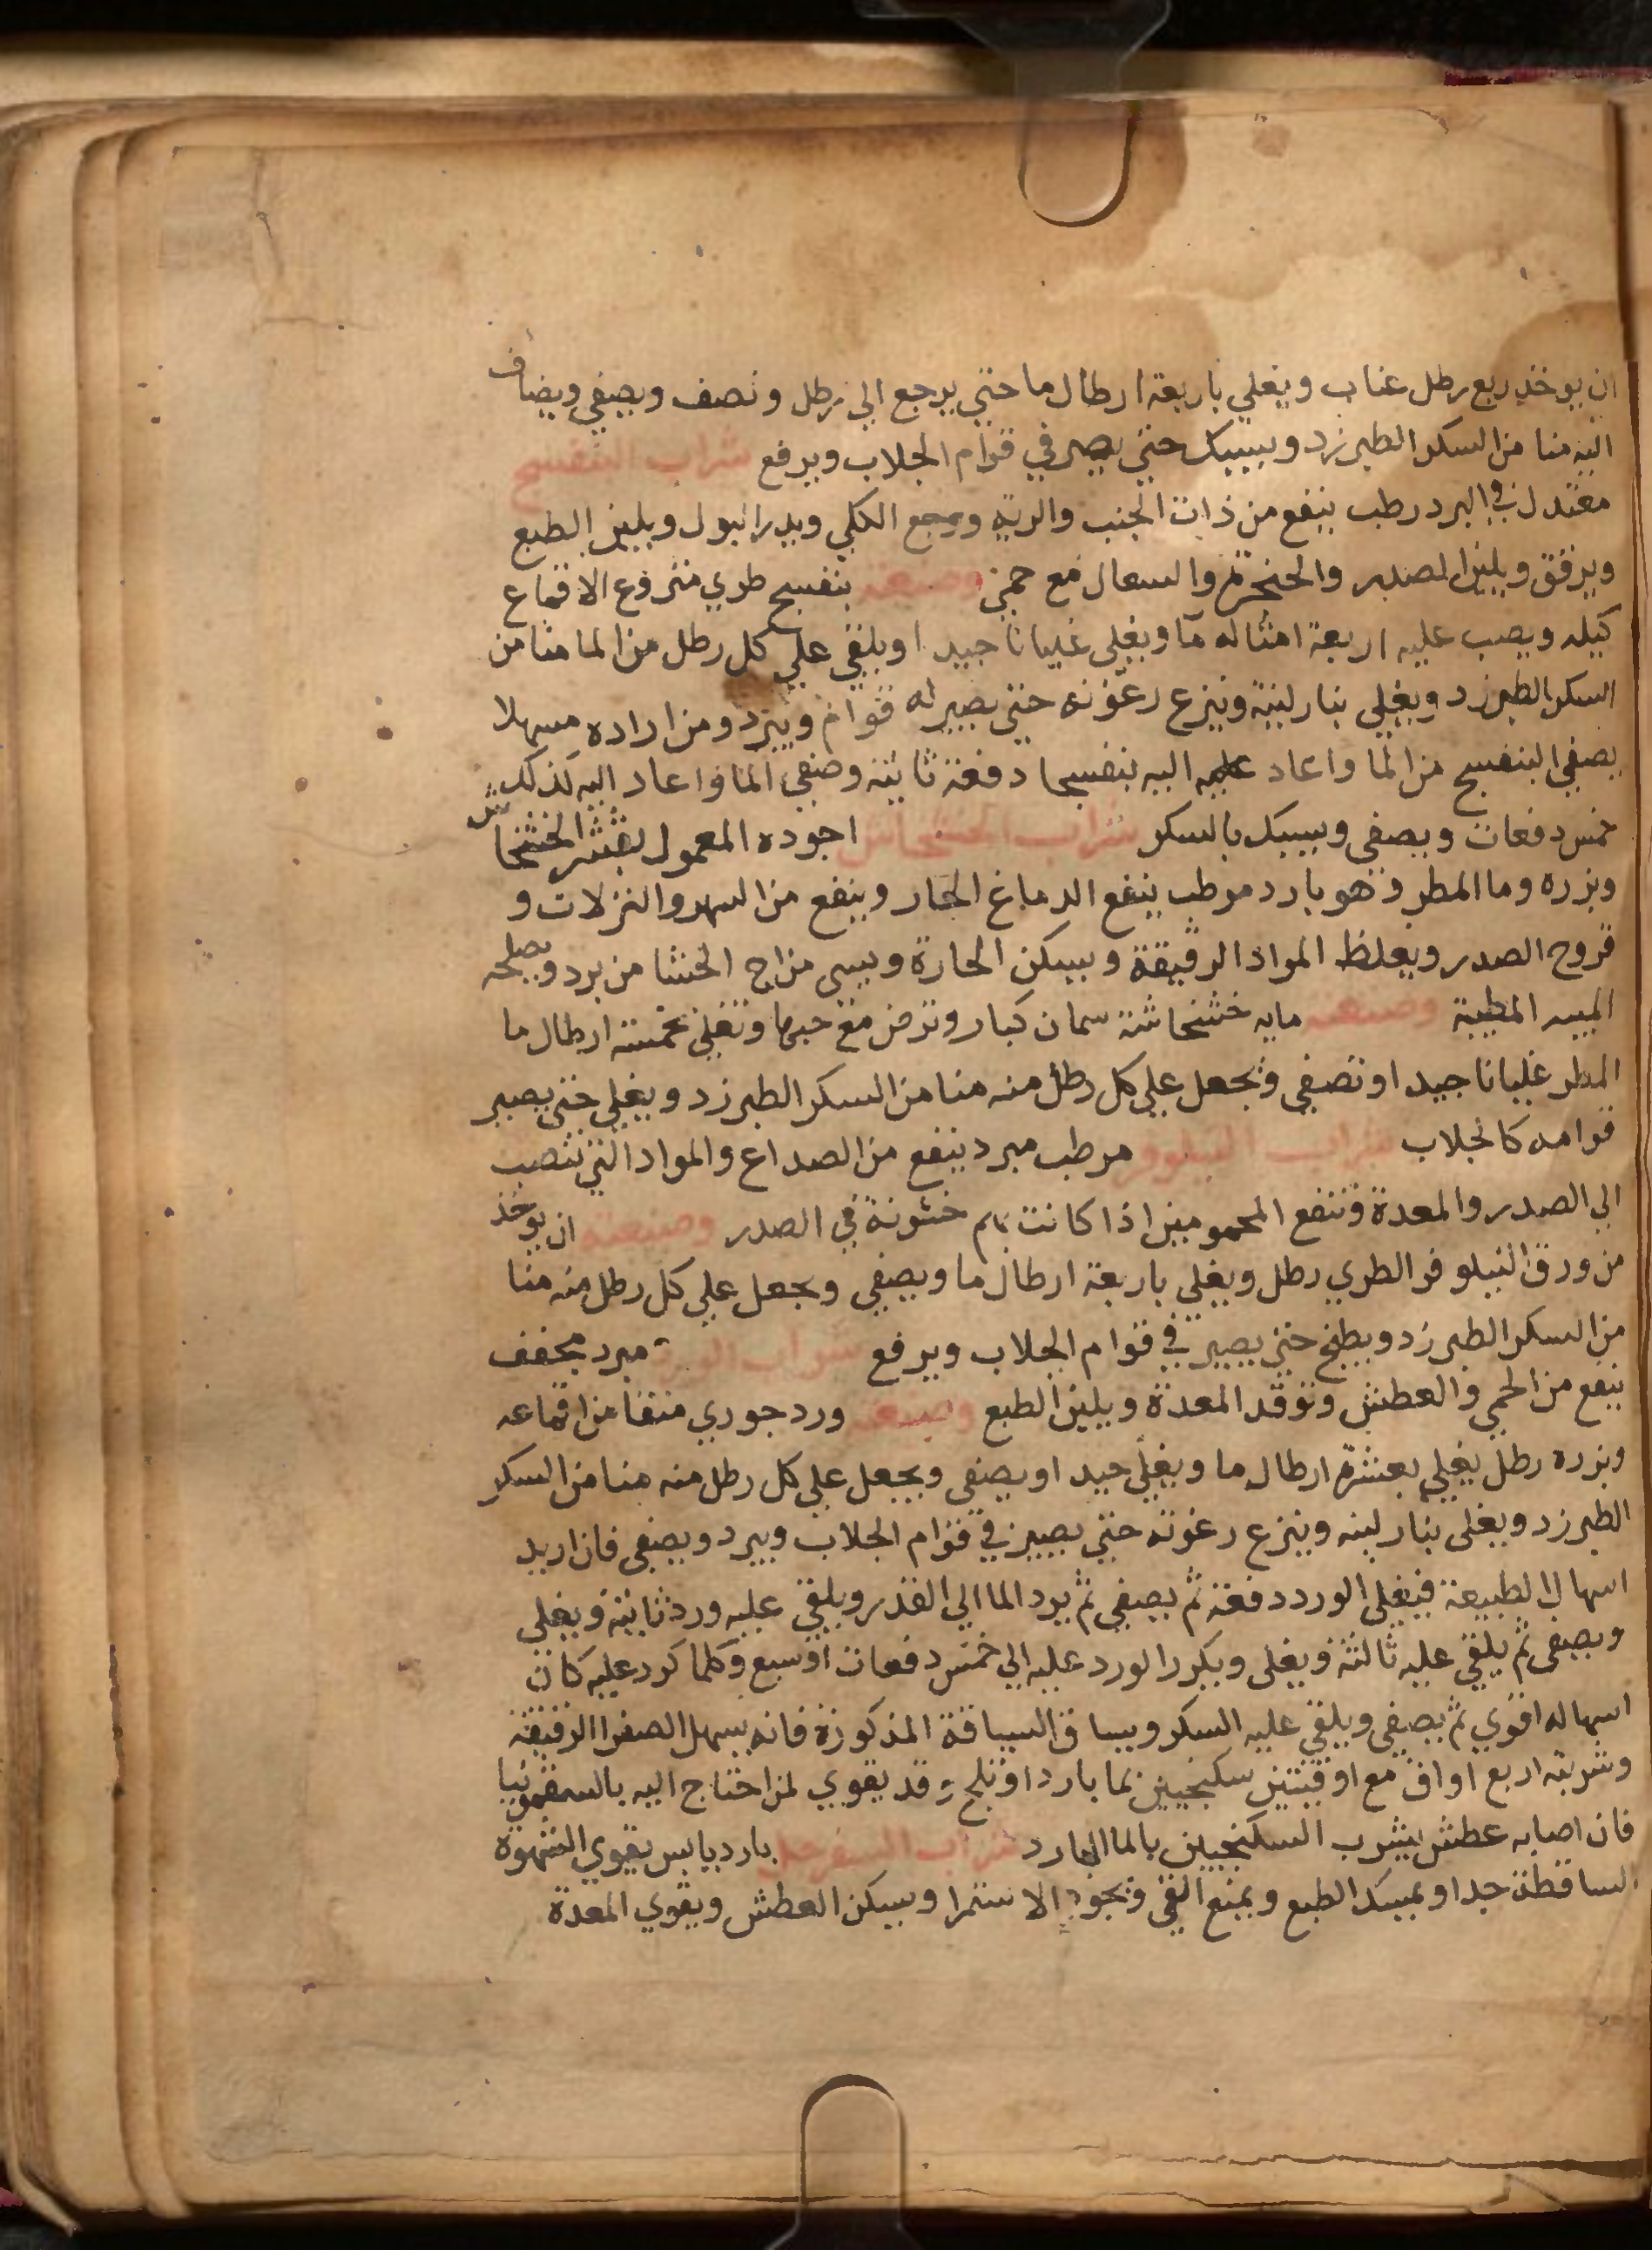 ان يوخذ ربع رطل عناب ويغلي باربعة ارطال ما حتي يرجع الي رطل ونصف ويصفي ويضاف
اليه منا من السكر الطبرزد ويسبك حتي يصير في قوام الجلاب ويرفع شراب البنفسج
معتدل في البرد رطب ينفع من ذات الجنب والرية ووجع الكلي ويدر البول ويلين الطبع
ويرقق ويلين الصدر والحنجرة والسعال مع حمي وصنعته بنفسج طري منزوع الاقماع
كيله ويصب عليه اربعة امثاله ما ويغلي غليانا جيدا ويلقي علي كل رطل من الما منا من
السكر الطبرزد ويغلي بنار لينة وينزع رغوته حتي يصير له قوام ويبرد ومن اراده مسهلا
يصفي البنفسج من الما واعاد عليه اليه بنفسجا دفعة ثانية وصفي الما واعاد اليه كذلك
خمس دفعات ويصفي ويسبك بالسكر شراب الخشخاش اجوده المعمول بقشر الخشخاش
وبزره وما المطر وهو بارد مرطب ينفع الدماغ الحار وينفع من السهر والنزلات و
قروح الصدر ويغلظ المواد الرقيقة ويسكن الحارة ويسي مزاج الحشا من برد ويصلحه
الميبه المطيبة وصنعته مايه خشخاشة سمان كبار وترض مع حبها وتغلي بخمسة ارطال ما
المطر غليانا جيدا وتصفي ويجعل علي كل رطل منه منا من السكر الطبرزد ويغلي حتي يصير
قوامه كالجلاب شراب النيلوفر مرطب مبرد ينفع من الصداع والمواد التي تنصب
الي الصدر والمعدة وتنفع المحمومين اذا كانت بهم خشونة في الصدر وصنعته ان يوخذ
من ورق النيلوفر الطري رطل ويغلي باربعة ارطال ما ويصفي ويجعل علي كل رطل منه منا
من السكر الطبرزد ويطبخ حتي يصير في قوام الجلاب ويرفع شراب الورد مبرد مجفف
ينفع من الحمي والعطش وتوقد المعدة ويلين الطبع وصنعته ورد جوري منقا من اقماعه
وبزره رطل يغلي بعشرة ارطال ما ويغلي جيدا ويصفي ويجعل علي كل رطل منه منا من السكر
الطبرزد ويغلي بنار لينه وينزع رغوته حتي يصير في قوام الجلاب ويبرد ويصفي فان اريد
اسهال الطبيعة فيغلي الورد دفعة ثم يصفي ثم يرد الما الي القدر ويلقي عليه ورد ثانية ويغلي
ويصفي ثم يلقي عليه ثالثة ويغلي ويكرر الورد عليه الي خمس دفعات او سبع وكلما كرر عليه كان
اسهاله اقوي ثم يصفي ويلقي عليه السكر ويساق السياقة المذكورة فانه يسهل الصفرا الرقيقة
وشربته اربع اواق مع اوقيتين سكنجبين بما بارد او ثلج وقد يقوي لمن احتاج اليه بالسقمونيا
فان اصابه عطش يشرب السكنجبين بالما البارد شراب السفرجل بارد يابس يقوي الشهوة
الساقطة جدا ويمسك الطبع ويمنع القي ويجود الاستمرا ويسكن العطش ويقوي المعدة